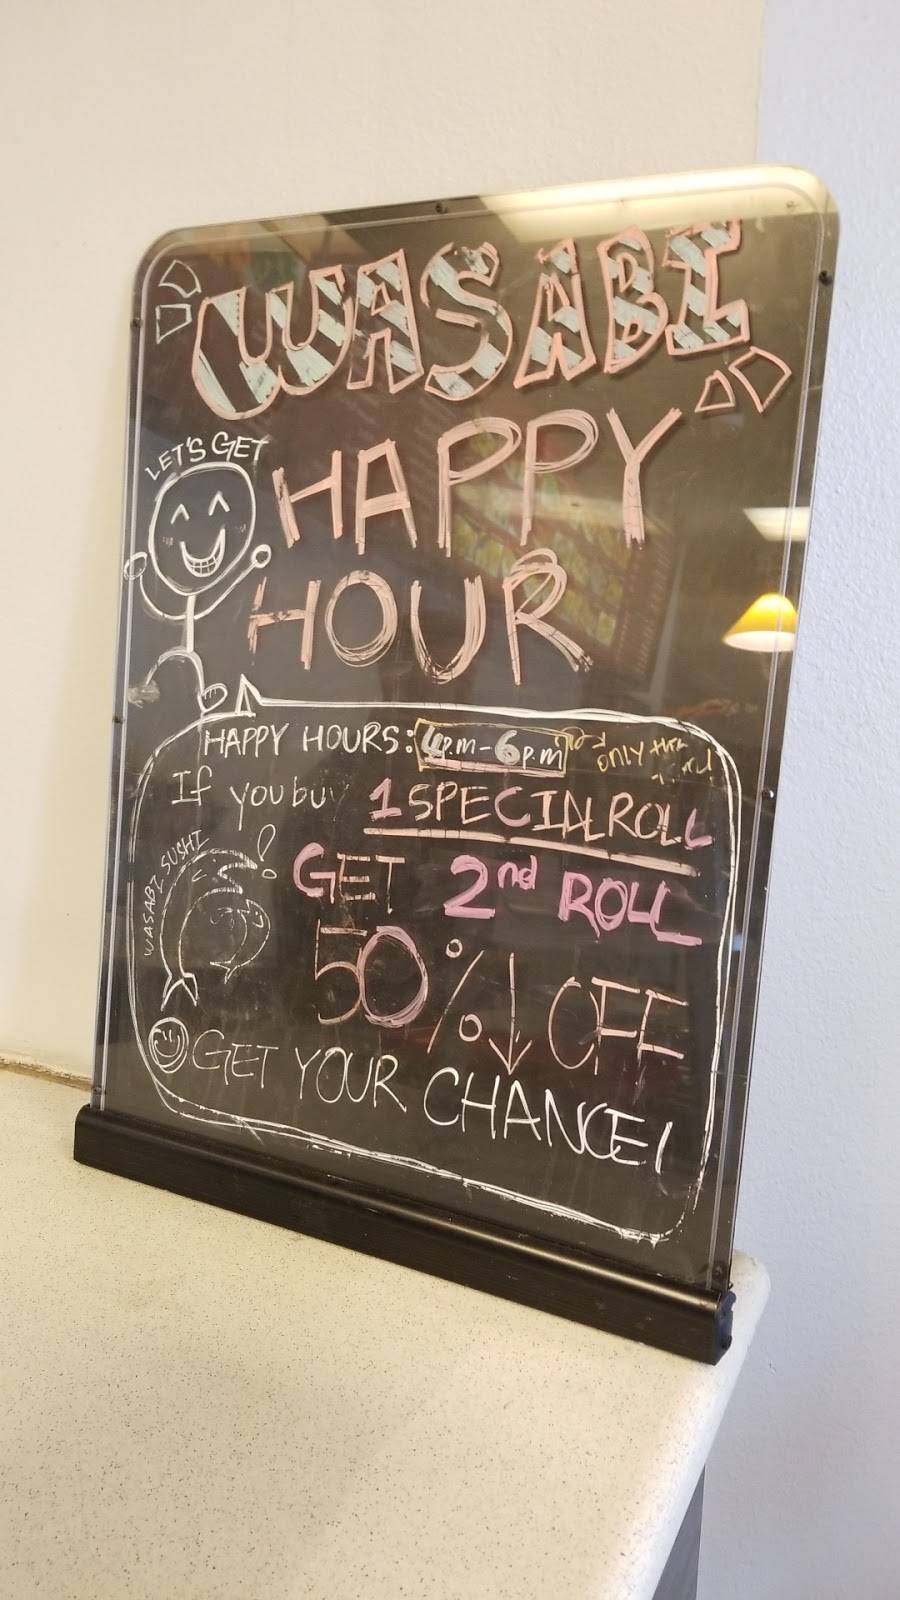 WASABI
LET'S GET
HAPPY
HOUR
HAPPY HOURS: 4p.m - 6p.m only
If you buy 1 SPECIAL ROLL
WASABI SUSHI
GET 2nd ROLL
50% ↓ OFF
GET YOUR CHANCE!